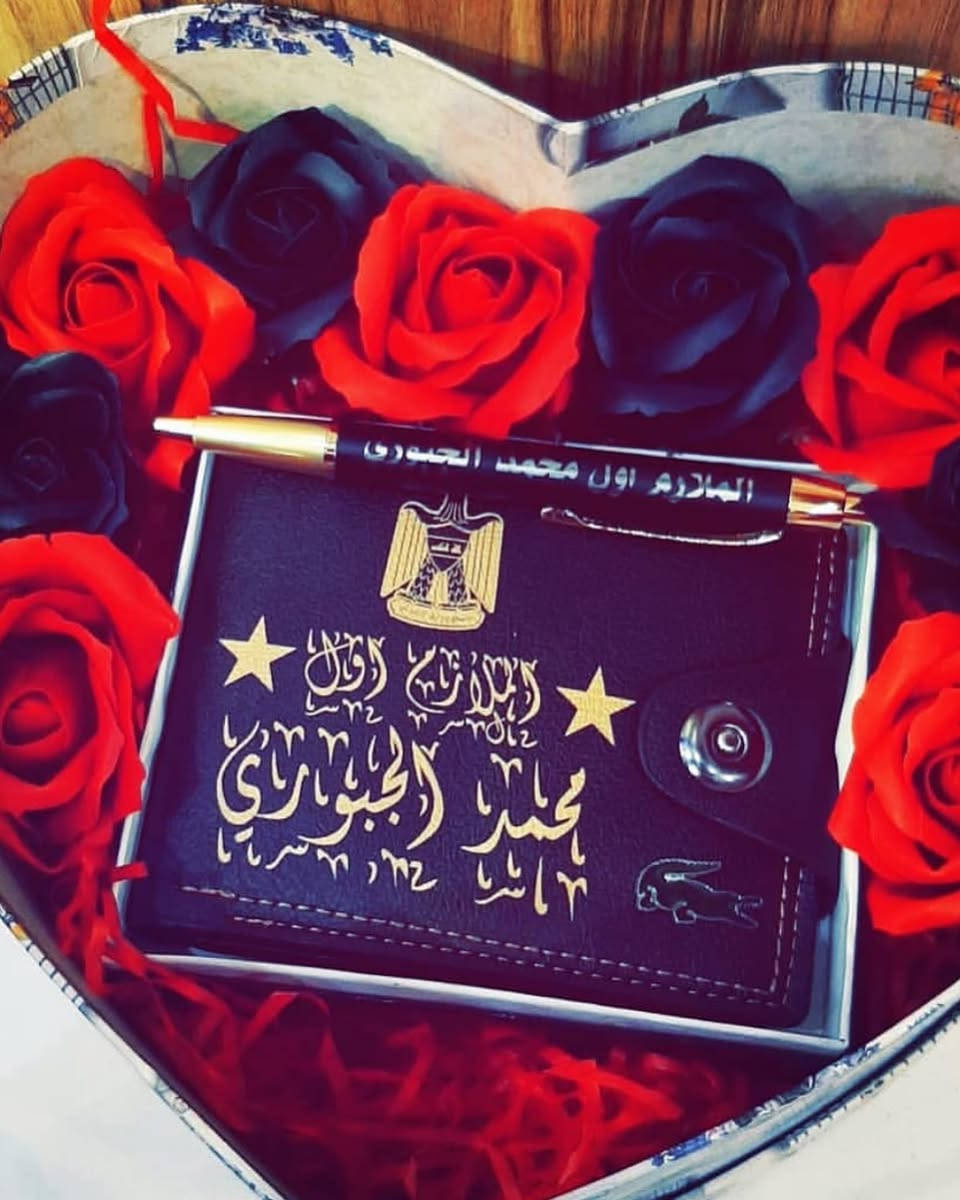 الملازم اول محمد الجبوري
الملازم اول
محمد الجبوري